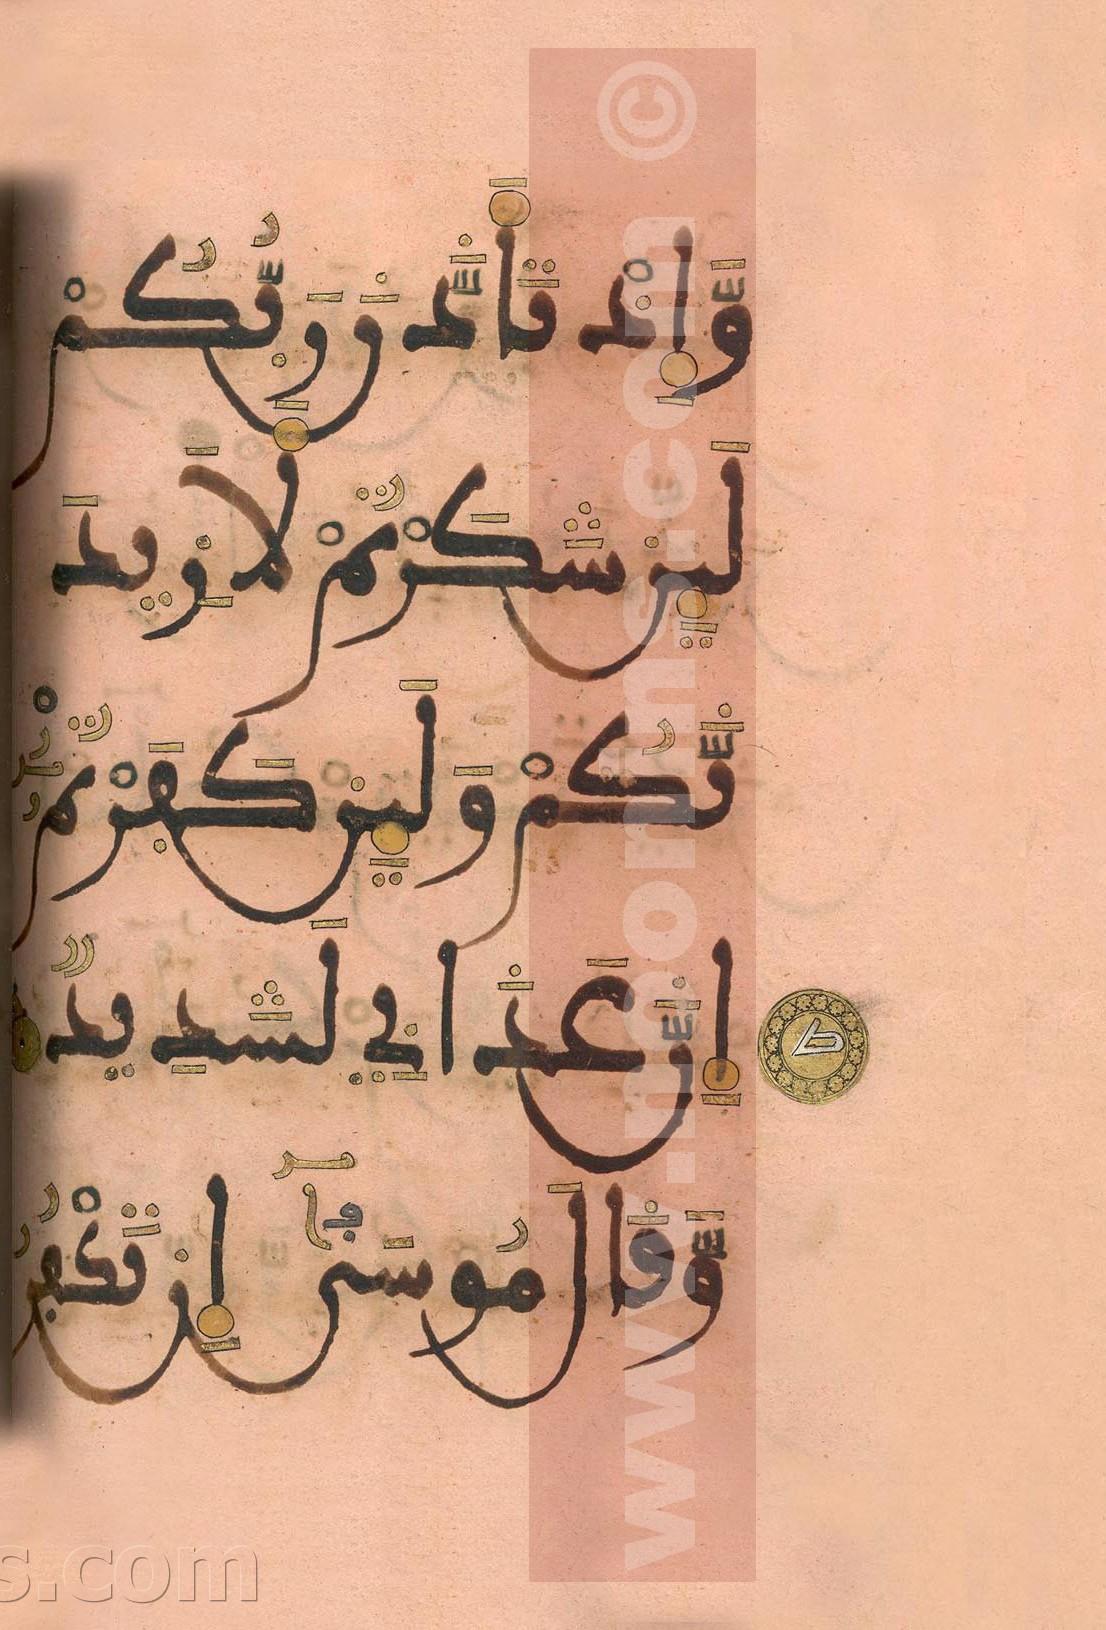 وَإِذْ تَأَذَّنَ رَبُّكُمْ
لَئِن شَكَرْتُمْ لَأَزِيدَ
نَّكُمْ وَلَئِن كَفَرْتُمُ
إِنَّ عَذَابِي لَشَدِيدٌ
وَقَالَ مُوسَىٰ إِن تَكْفُرُ
www.noonhs.com ©
s.com